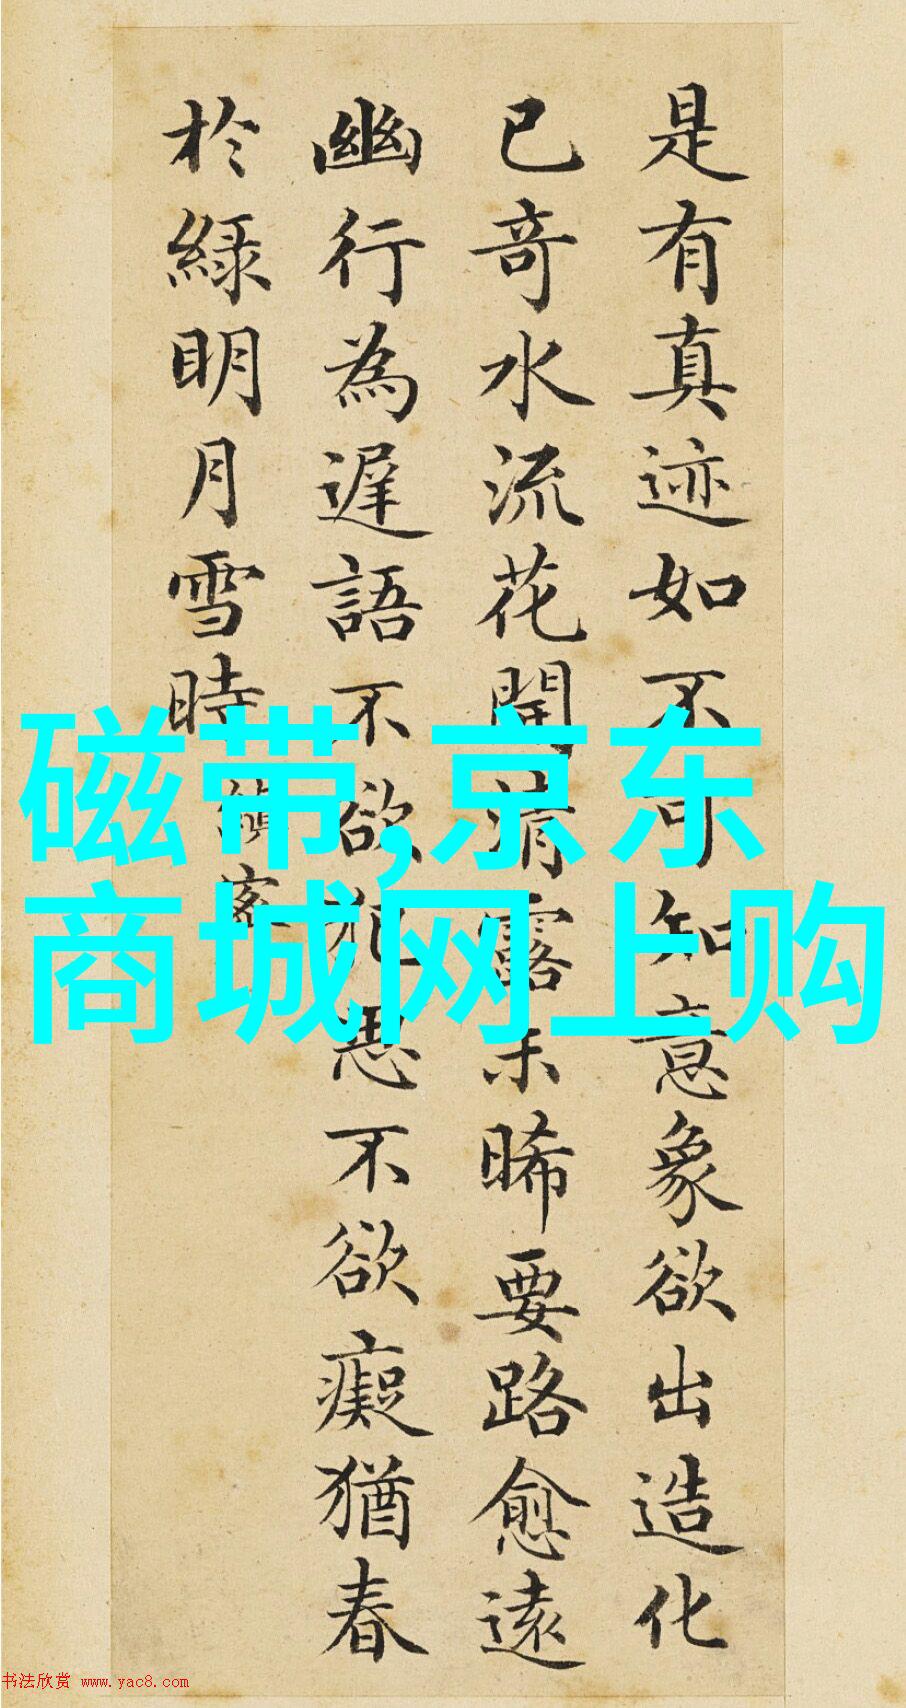 是有真迹如不可知意象欲出造化
已奇水流花開清露未晞要路愈遠
幽行為遲語不欲犯思不欲癡猶春
於綠明月雪時
縝密
磁带,京东
商城网上购
书法欣赏 www.yac8.com